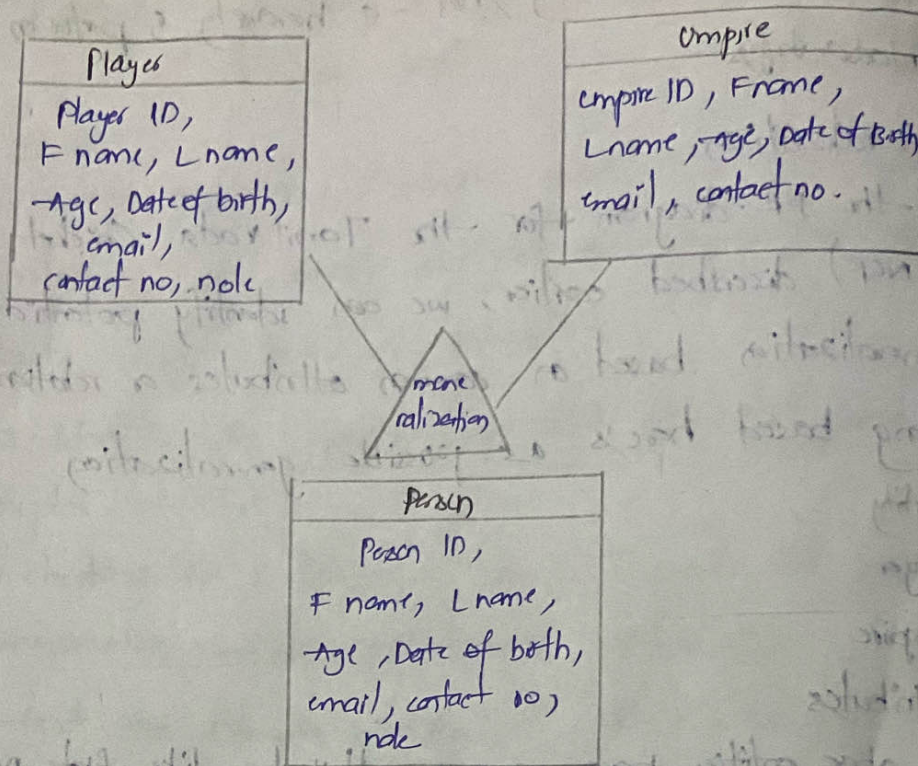 Player
Player ID,
F name, Lname,
Age, Date of birth,
email,
contact no, role
umpire
umpire ID, Fname,
Lname, Age, Date of Birth
email, contact no.
ralization
Person
Person ID,
F name, L name,
Age, Date of birth,
email, contact no,
role